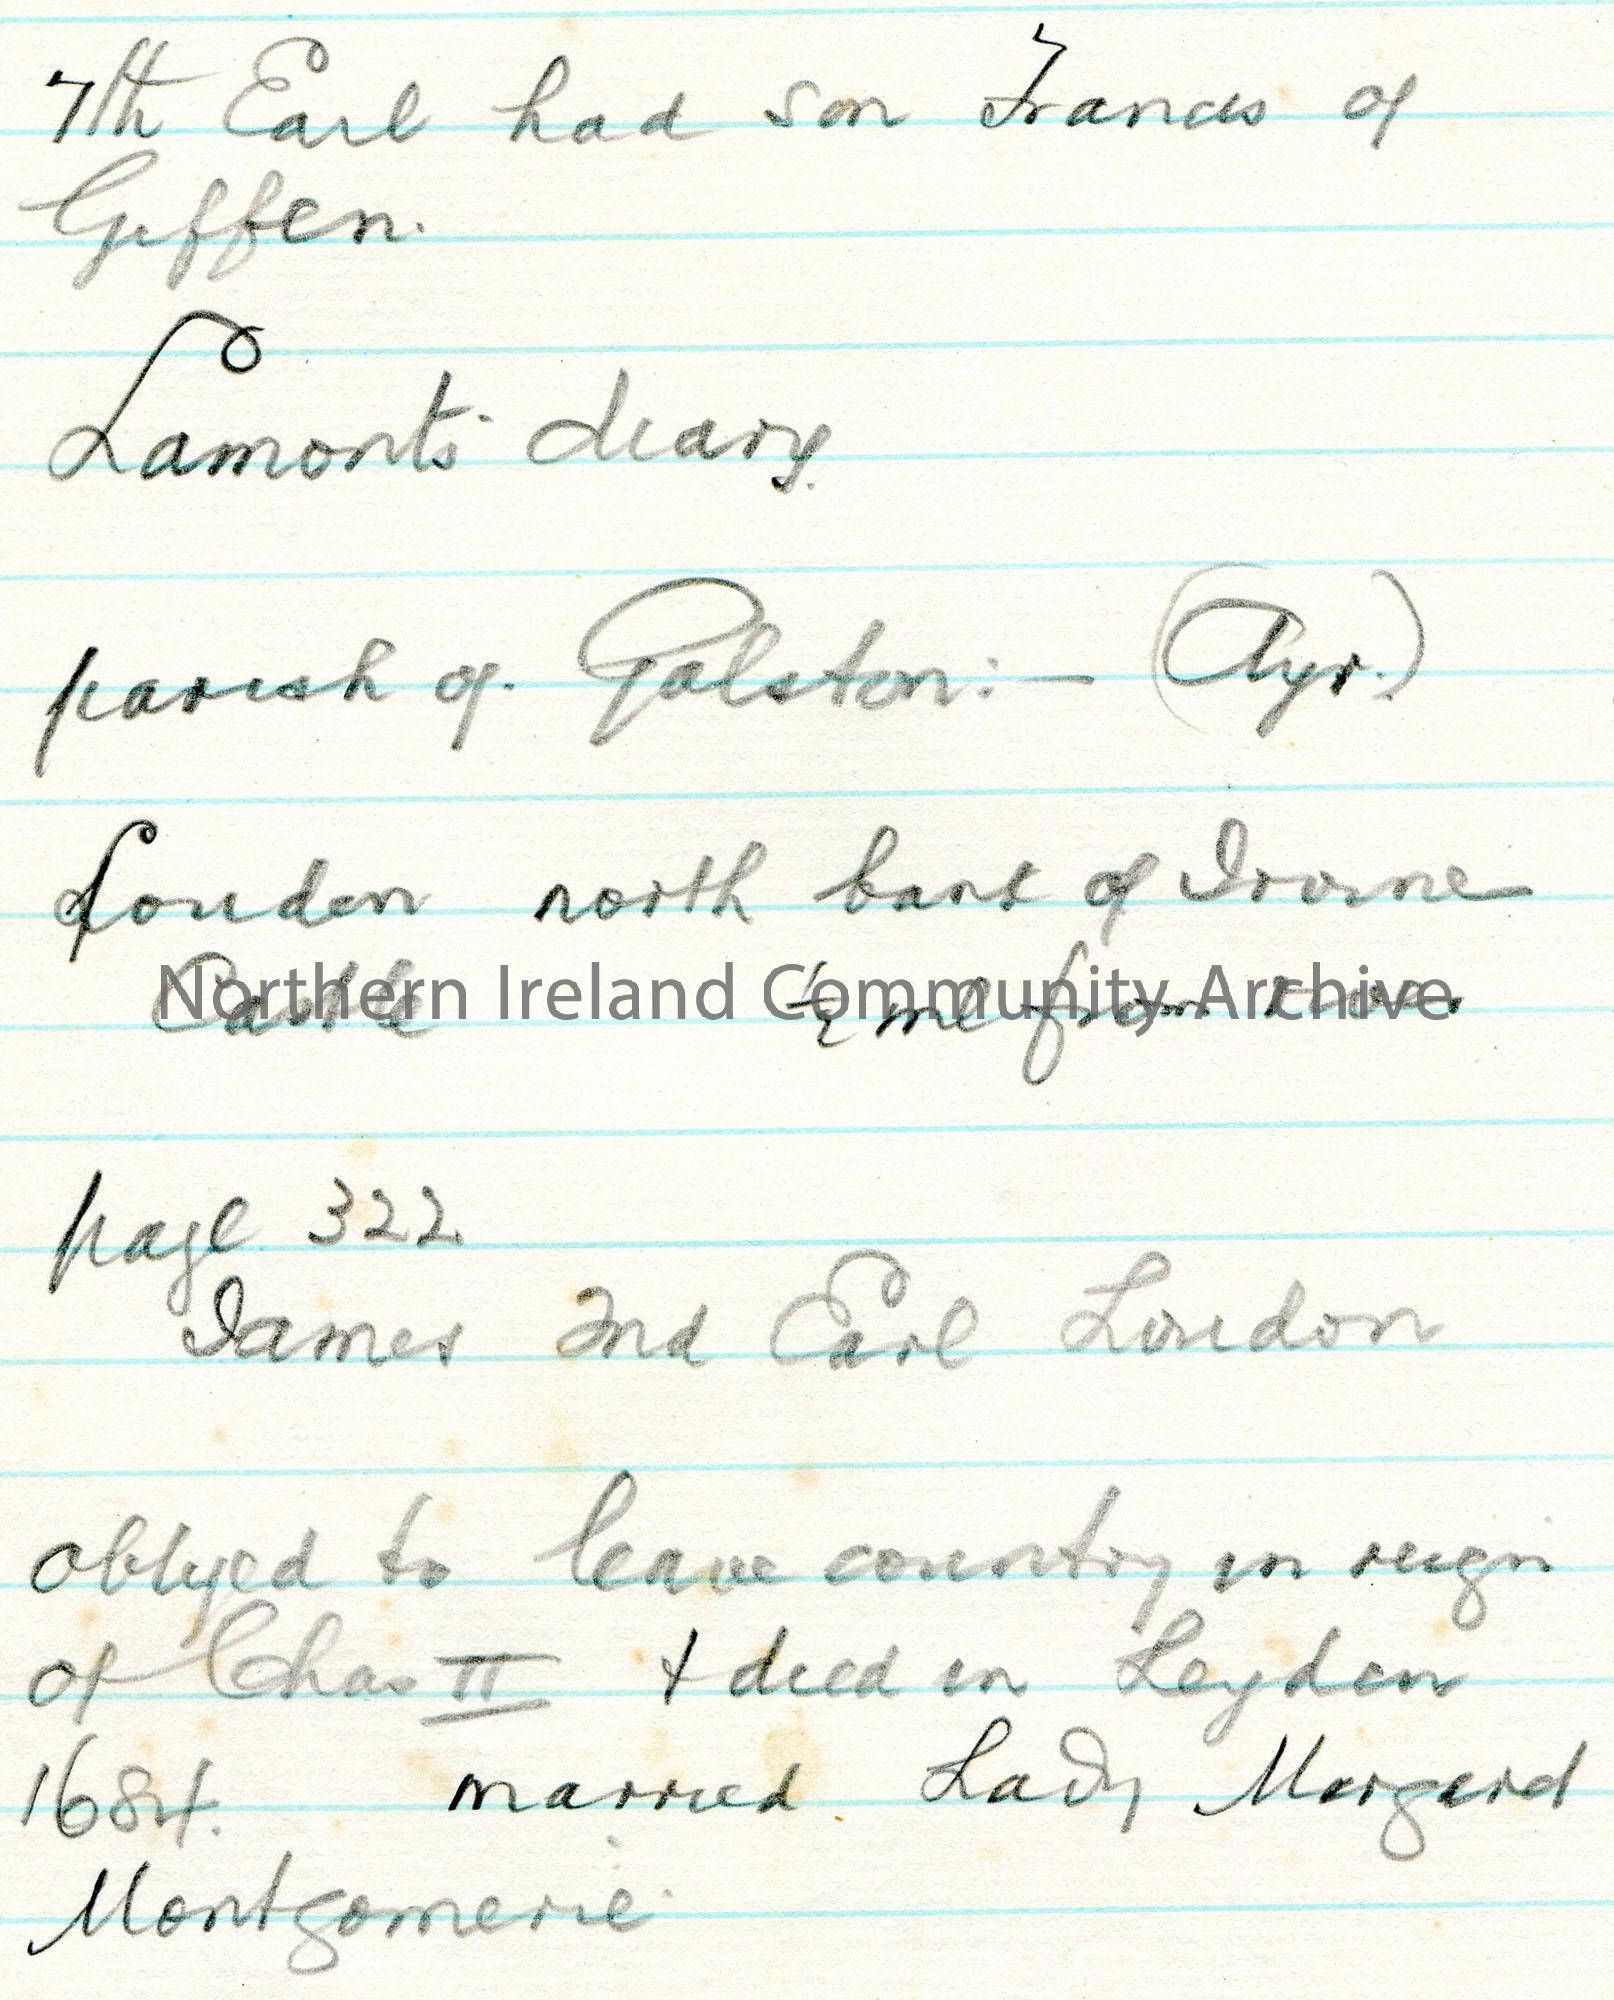 7th Earl had son Francis of
Giffen.
Lamont's diary.
parish of Galston:— (Ayr.)
Louden north bank of Irvine
Castle ½ ml from river
Northern Ireland Community Archive
page 322
James 2nd Earl Loudon
obliged to leave country in reign
of Chas II + died in Leyden
1684. married Lady Margaret
Montgomerie